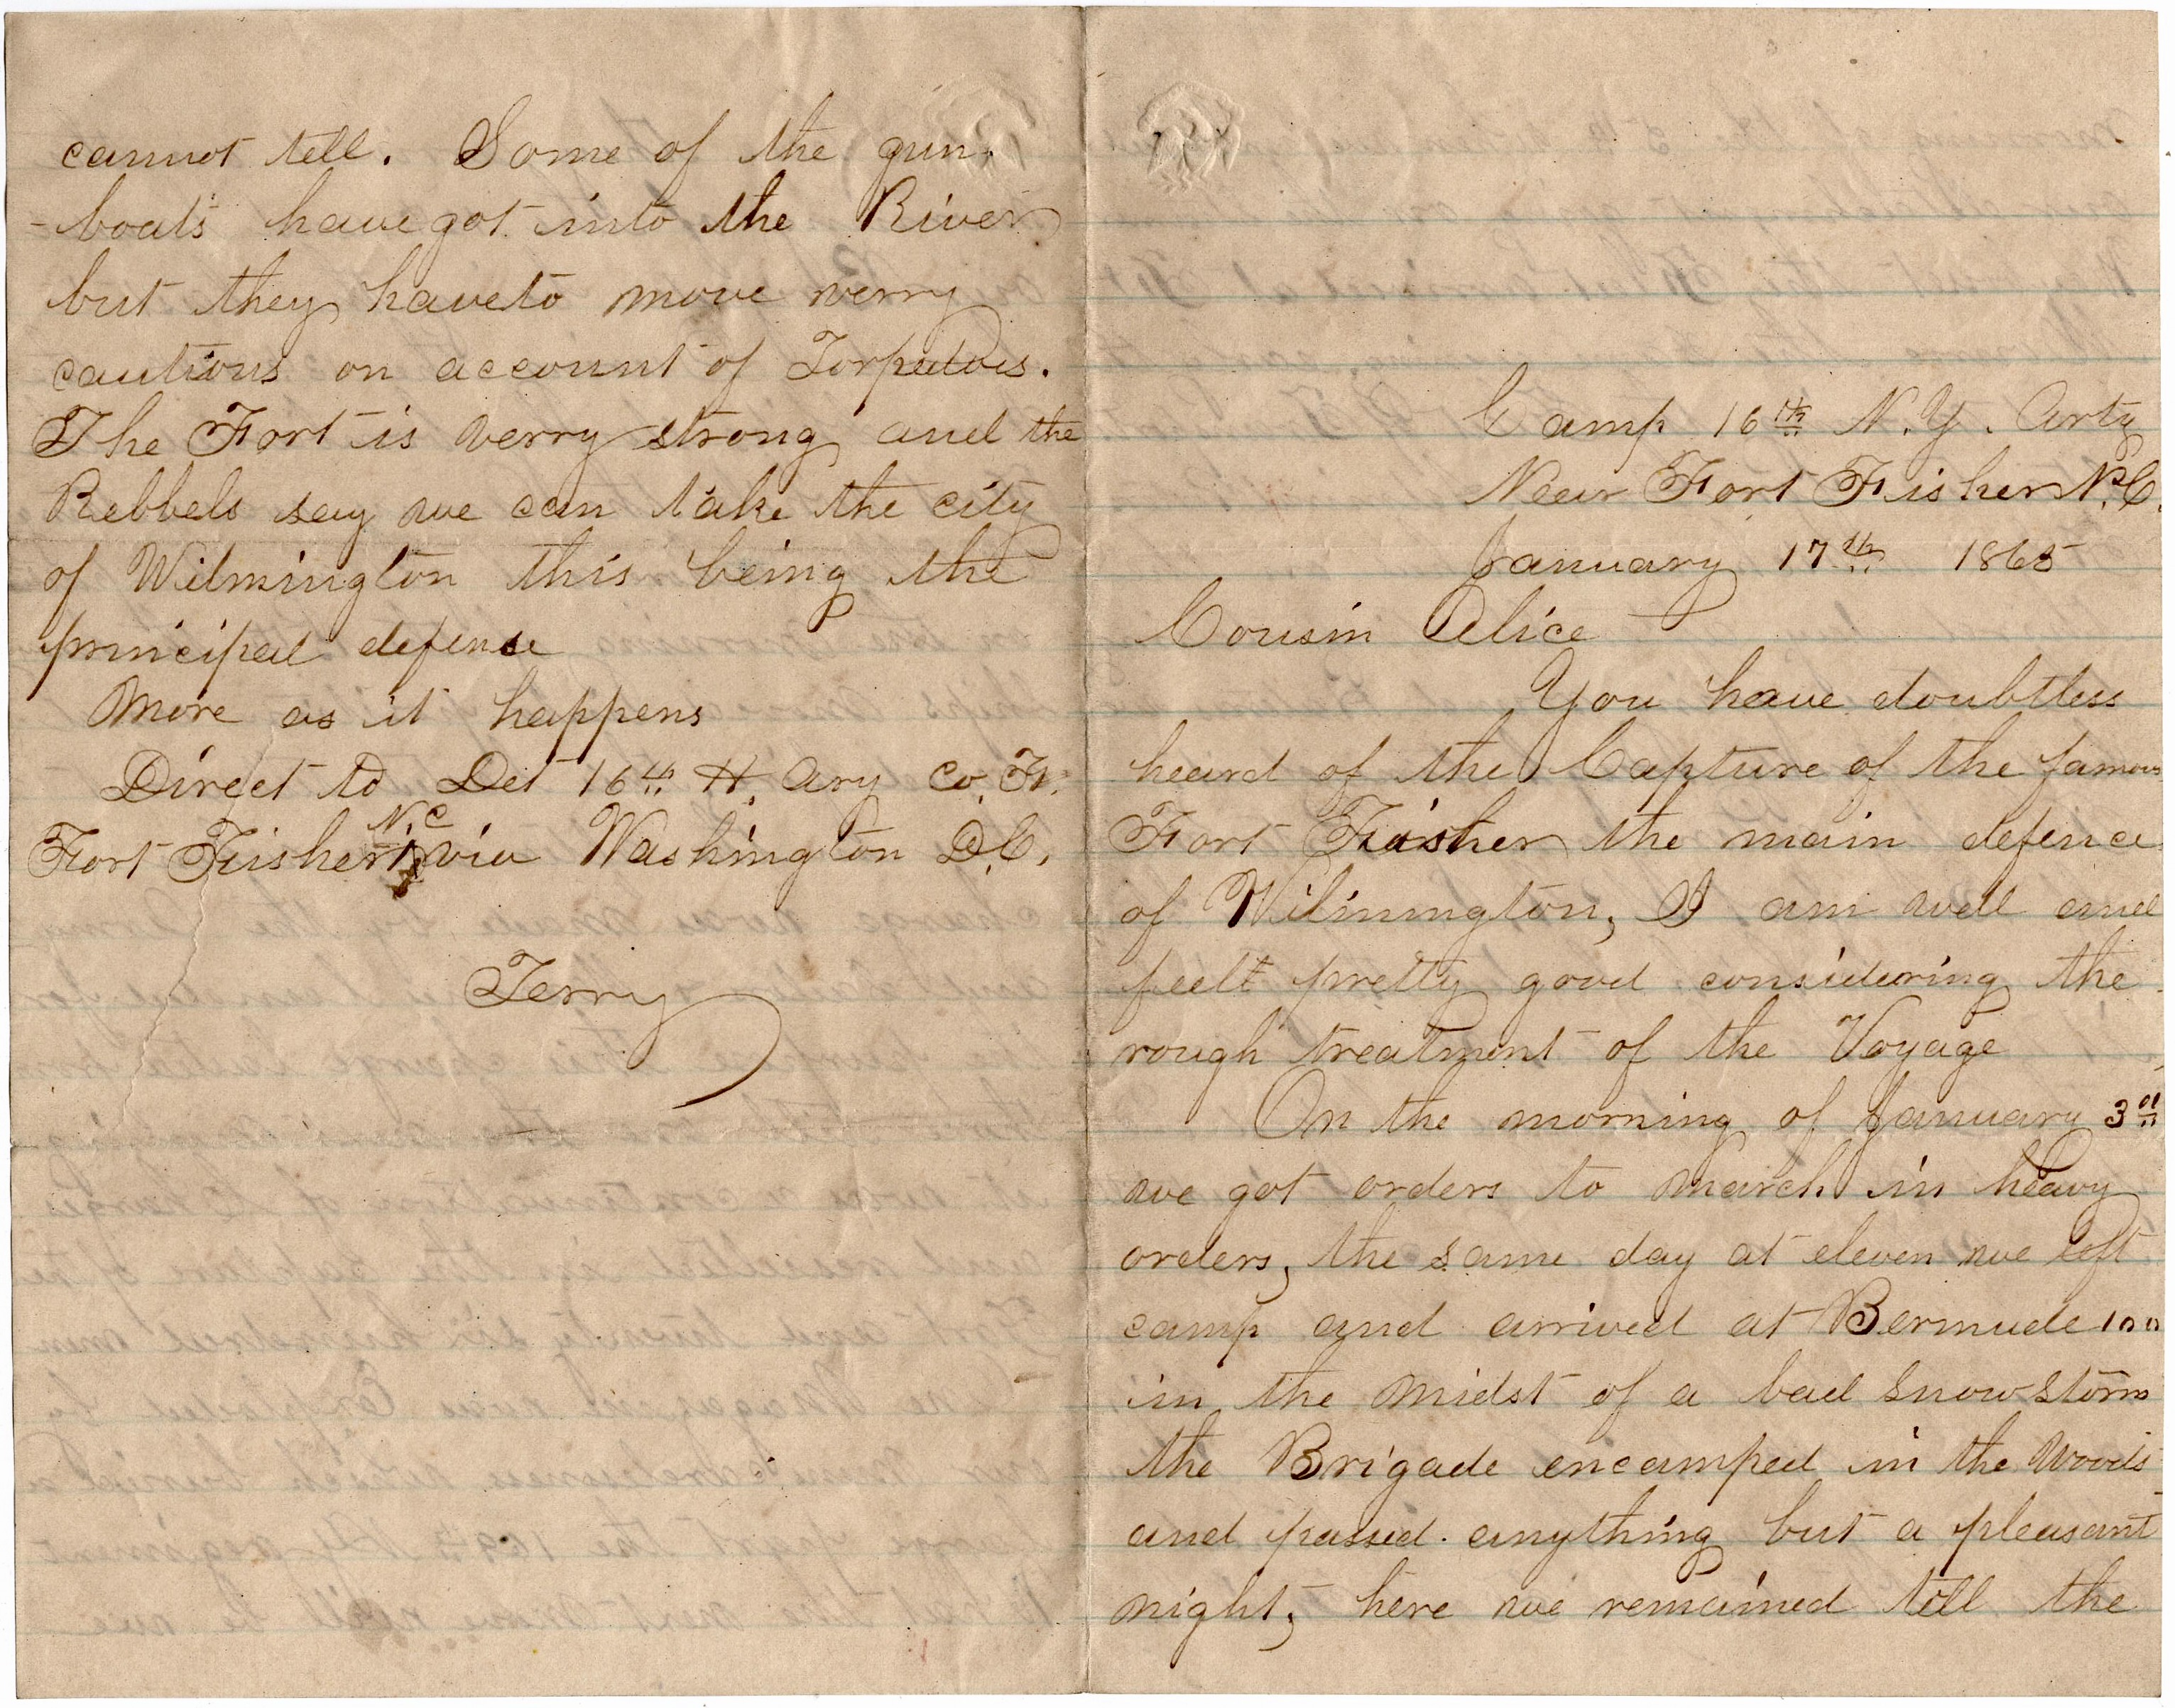 cannot tell. Some of the gun.
-boats have got into the River
but they have to move verry
cautious on account of Torpedoes.
The Fort is verry strong and the
Rebbels say we can take the city
of Wilmington this being the
principal defense
More as it happens
Direct to Det 16th H. Ary Co. F.
N.C
Fort Fisher via Washington D.C.
Terry
Camp 16th N.Y. Arty
Near Fort Fisher N.C.
January 17th 1865
Cousin Alice
You have doubtless
heard of the Capture of the famous
Fort Fisher the main defence
of Wilmington, I am well and
feelt pretty good considering the
rough treatment of the Voyage
On the morning of January 3d
we got orders to march in heavy
orders, the same day at eleven we left
camp and arrived at Bermude
in the midst of a bad snow storm
the Brigade encamped in the Woods
and passed anything but a pleasant
night, here we remained till the